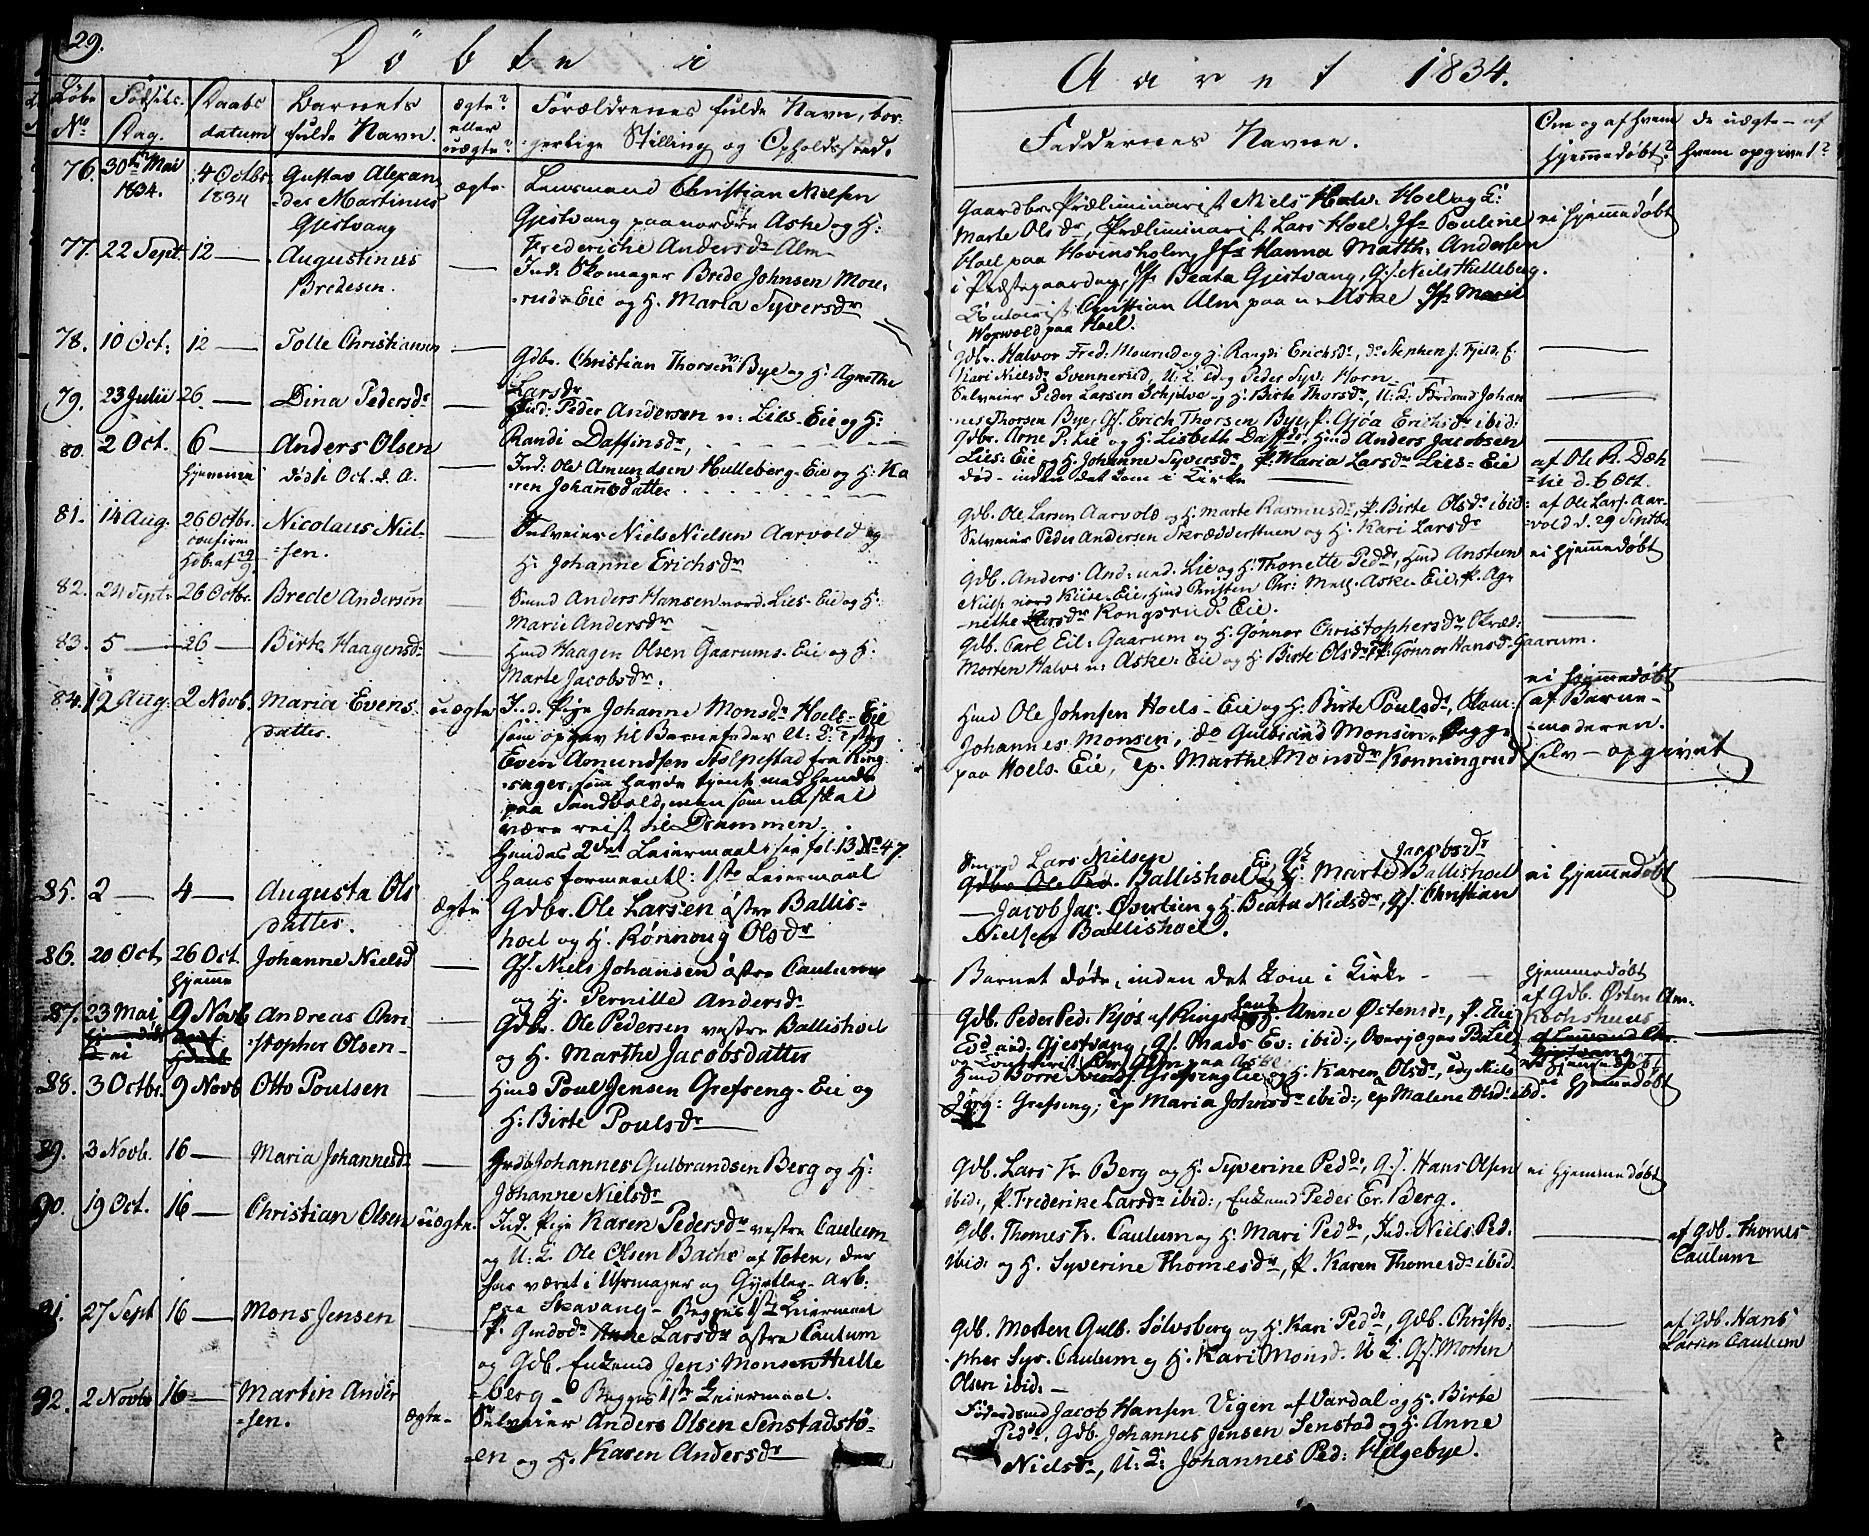 29.
Döbte i
Aaret 1834.
Løbe No
Födsels Dag.
Daabs datum
Barnets fulde Navn.
ægte? eller uægte?
Forældrenes fulde Navn, bor-
gerlige Stilling og Opholdssted.
Faddernes Navne.
Om og af hvem hjemmedøbt?
de uægte - af hvem opgivet?
76. 30te Mai 1834. 4 Octbr. 1834 Gustav Alexan-
der Martinus
Gjestvang
ægte
Lensmand Christian Nielsen
Gjestvang paa nordre Aske og H:
Frederiche Andersdr Alm
Gaardbr. Præliminarist Niels Halv. Hoel og H:
Marte Olsdr, Præliminarist Lars Hoel, Jfr Pouline
Hoel paa Hovinsholm, Jfr Hanna Matth. Andersen
i Præstegaarden, Jfr Beata Gjestvang, G.s. Neils Hulleberg.
Christian Alm paa n. Aske Jfr Maril
Woxvold paa Hoel.
ei hjemmedøbt
77. 22 Sept. 12 — Augustinus
Bredesen.
—
Ind: Skomager Brede Johnsen Mou-
rud-Eie og H. Marta Syversdr
Gdbr. Halvor Fred: Mourud og H. Rangdi Erichsdr, do Stephen J. Fjeld, P.
Kari Nielsdr Svennerud, U. K. Ed. og Peder Syv. Horn
—
78. 10 Oct: 12 — Tolle Christiansen —
Gdbr. Christian Thorsen Bye og H. Agnethe
Larsdr
Selveier Peder Larsen Schjelve og H. Birte Thorsdr, U. K. Föderaad Johan
nes Thorsen Bye, G.s. Erich Thorsen Bye, P. Gjøa Erichsdr ibid:
79. 23 Julii 26. — Dina Pedersdr —
Ind: Peder Andersen n: Lies-Eie og H:
Randi Daffinsdr,
Gdbr. Arne P. Lie og H. Lisbeth Daffdr Hmd Anders Jacobsen
Lies-Eie og H. Johanne Syversdr, P. Maria Larsdr Lies-Eie
—
80. 2 Oct. 6 — Anders Olsen
hjemme
döde i Oct. d. A.
—
Ind: Ole Amundsen Hulleberg-Eie og H: Ka
ren Johannsdatter
död - inden det kom i Kirke
af Ole R. Dæh
lie d. 6 Oct.
81. 14 Aug. 26 Octbr. Nicolaus Niel-
sen.
confirm
Hdb: af 29/9
—
Selveier Niels Nielsen Aarvold og
H. Johanne Erichsdr
Gdb. Ole Larsen Aarvold og H. Marte Rasmusdr, P. Birte Olsdr ibid:
Selveier Peder Andersen Skrædderstuen og H. Kari Larsdr
af Ole Lars. Aar-
vold d. 29 Septbr
82. 24 Sept. 26 Octbr. Brede Andersen —
Smed Anders Hansen nord. Lies-Eie og H:
Marie Andersdr
Gdb. Anders And: nord. Lie og H. Thonette Peddr, Hmd Ansten
Niels. nord Kiise. Eie, Hmd Christen Chr: Mell. Aske-Eie, P. Ag-
nethe Larsdr Kongsrud-Eie.
ei hjemmedøbt
83. 5 — 26 — Birte Haagensdr —
Hmd Haagen Olsen Gaarums-Eie og H.
Marte Jacobsdr.
Gdb. Carl Eil: Gaarum og H. Gønnor Christophersdr, Skræd:
Morten Halv: n: Aske-Eie og H. Birte Olsdr, P: Gønnor Hansdr Gaarum.
—
84. 12 Aug. 2 Novb. Maria Evens-
datter
uægte
Ind. Pige Johanne Monsdr Hoels-Eie
som opgav til Barnefader U: K:
Even Amundsen Stolpestad fra Ring
sager, som havde tjent med hende
paa Sandvold, men som nu skal
være reist til Drammen.
Hendes 2det Leiermaal, sie fol. 13 No 47.
Hans formeentl: 1ste Leiermaal
Hmd Ole Johnsen Hoels-Eie og H: Birte Poulsdr, Skom:
Johannes Monsen, do Gulbrand Monsen, begge
paa Hoels-Eie, P. Marthe Monsdr Konningrud
ei hjemmedøbt
af Barne-
moderen.
selv - opgivet
85. 2 — 4 — Augusta Ols
datter.
ægte
Gdbr. Ole Larsen östre Ballis-
hoel og H. Rönnoug Olsdr
Smed Lars Nielsen Jacobsdr
Gdbr. Ole Ped. Ballishoel Eie og H. Marte Ballishoel
— Jacob Jac. Overlien og H. Beata Nielsdr, G.s. Christian
Nielsen Ballishoel.
ei hjemmedøbt
86. 20 Oct. 26 Oct. Johanne Nielsd
hjemme
—
G.s. Niels Johansen östre Caulum
og H. Pernille Andersdr
Barnet döde, inden det kom i Kirke
hjemmedøbt
af Gdb. Østen
Kochshuus
87. 23 Mai 9 Novb Andreas Chri-
stopher Olsen
ei
Gdbr. Ole Pedersen vestre Ballishoel
og H. Marthe Jacobsdatter
Gdb. Peder Ped: Kjös af Rings og H. Anne Østensdr, P. Elie
Evd. and. Gjestvang, G.s. Thavs Ev: ibid:, Overjæger
ei hjemmedøbt
88. 3 Octbr. 9 Novb Otto Poulsen —
Hmd Poul Jensen Grefseng-Eie og
H. Birte Poulsdr
Hmd Börre Grefseng Eie og H. Karen Olsdr, Niels
Jörg: Grefseng, P Maria Johnsdr ibid:, P Malene Olsdr ibid.
ei hjemmedøbt
89. 3 Novb. 16 — Maria Johannesdr —
Gdb Johannes Gulbrandsen Berg og H:
Johanne Nielsdr
Gdb. Lars Fr. Berg og H. Syverine Peddr, G.s. Hans Olsen
ibid:, P. Frederike Larsdr ibid:, Enkemd Peder Er. Berg.
ei hjemmedøbt
90. 19 Oct. 16 — Christian Olsen uægte
Ind. Pige Karen Pedersdr vestre Caulum
og U: K. Ole Olsen Bache af Toten, der
har været i Uhrmager og Gjørtler-Arb:
paa Skavang - Begges 1ste Leiermaal
Gdb. Thomes Fr. Caulum og H. Mari Peddr, Ind. Niels Ped:
ibid: og H. Syverine Thomesdr, P. Karen Thomesdr ibid
—
af Gdb. Thomes
Caulum
91. 27 Sept 16 — Mons Jensen —
P. Gmdsdr Anne Larsdr östre Caulum
og Gdb. Enkemd Jens Monsen Hulle
berg - Begges 1ste Leiermaal.
Gdb. Morten Gulb. Sølvsberg og H. Kari Peddr, Gdb. Christo-
pher Syv. Caulum og H. Kari Monsd. U. K. G.s. Morten
Olsen ibid: —
—
af Gdb. Hans
Larsen Caulum
92. 2 Novbr 16 — Martin Ander
sen.
ægte
Selveier Anders Olsen Senstadstö-
en og H. Karen Andersdr
Föderaadsmd Jacob Hansen Vigen af Vardal og H. Birte
Peddr, Gdb. Johannes Jensen Senstad og H. Anne
Nielsdr, U: K: Johannes Ped: Helgebye.
—